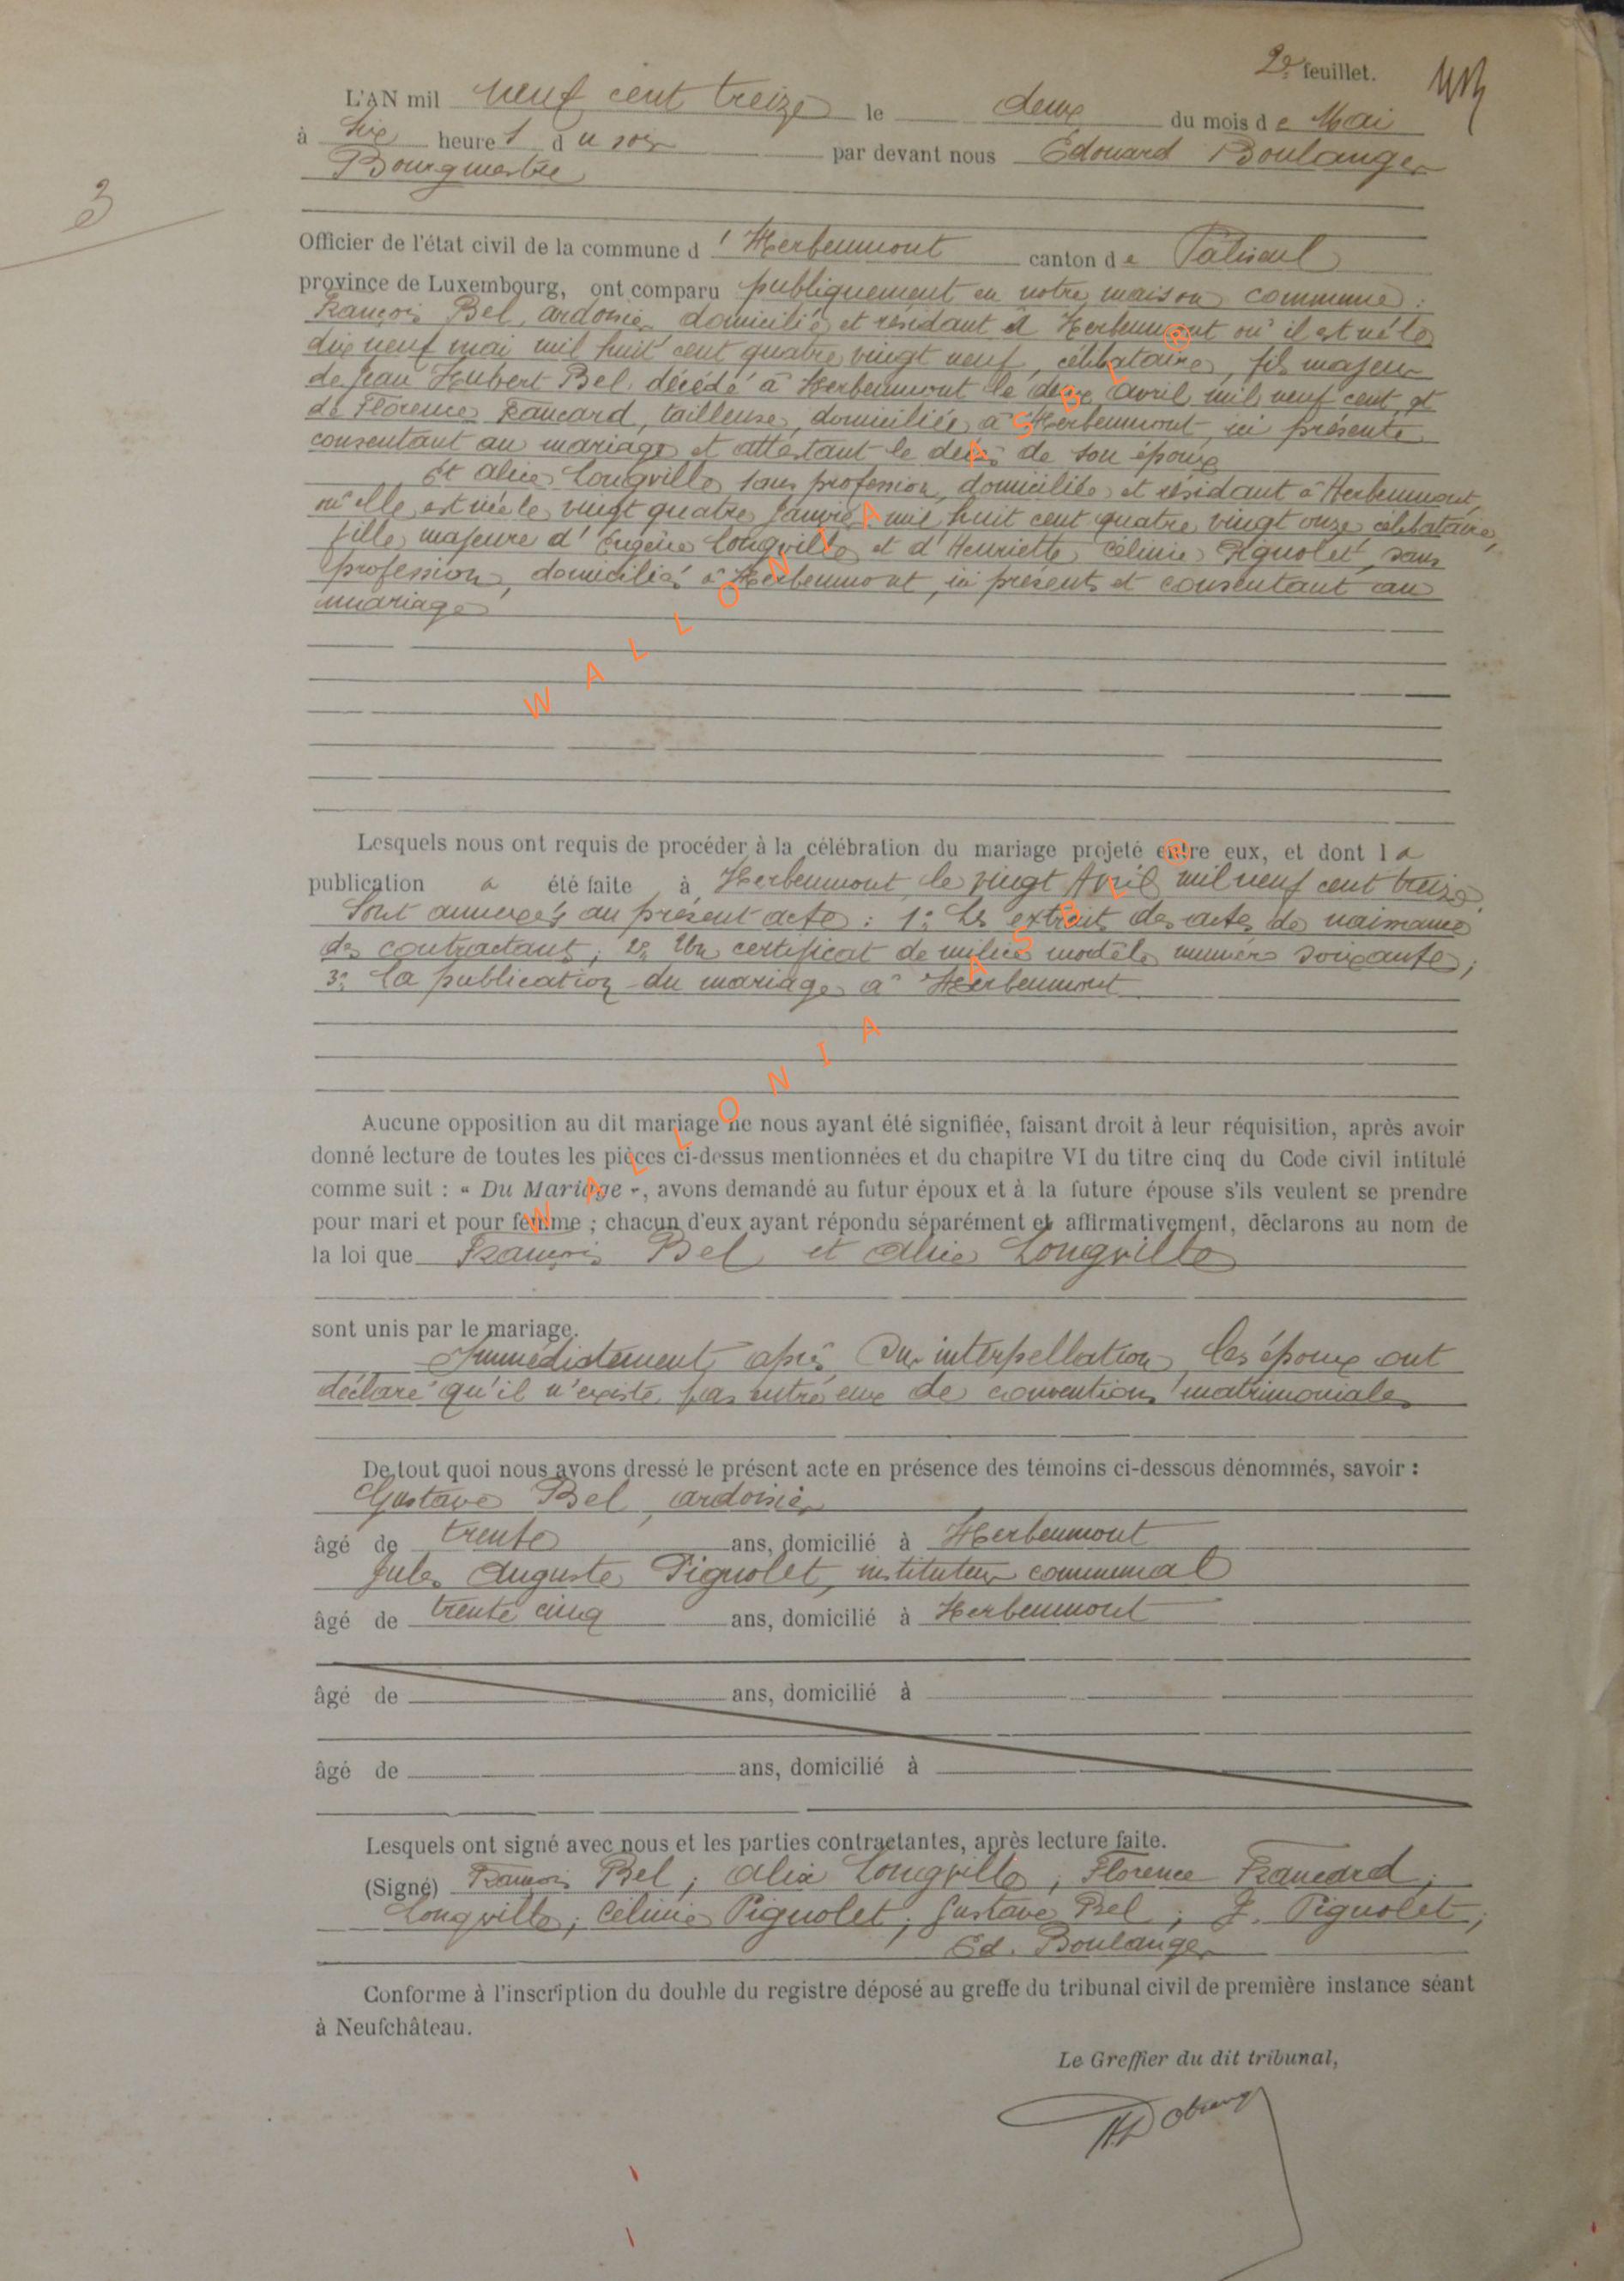 2e feuillet.
L'AN mil neuf cent treize le deux du mois de Mai
à six heures du soir par devant nous Edouard Boulanger
Bourgmestre
3
Officier de l'état civil de la commune d'Herbeumont canton de Paliseul
province de Luxembourg, ont comparu publiquement en notre maison commune :
François Bel, ardoisier domicilié et résidant à Herbeumont où il est né le
dix neuf mai mil huit cent quatre vingt neuf, célibataire, fils majeur
de Jean Hubert Bel, décédé à Herbeumont le deux avril mil neuf cent, et
de Florence Francard, tailleuse, domiciliée à Herbeumont, ici présente
consentant au mariage et attestant le décès de son époux
Et Alice Longville sans profession, domiciliée et résidant à Herbeumont,
où elle est née le vingt quatre janvier mil huit cent quatre vingt onze célibataire,
fille majeure d'Eugène Longville et d'Henriette Célinie Pignolet, sans
profession, domiciliés à Herbeumont, ici présents et consentant au
mariage
Lesquels nous ont requis de procéder à la célébration du mariage projeté entre eux, et dont la
publication a été faite à Herbeumont le vingt Avril mil neuf cent treize
Sont annexés au présent acte : 1° Les extraits des actes de naissance
des contractants ; 2° Un certificat de milice modèle numéro soixante ;
3° La publication du mariage à Herbeumont
WALLONIA ASBL ®
WALLONIA ASBL ®
Aucune opposition au dit mariage ne nous ayant été signifiée, faisant droit à leur réquisition, après avoir
donné lecture de toutes les pièces ci-dessus mentionnées et du chapitre VI du titre cinq du Code civil intitulé
comme suit : « Du Mariage », avons demandé au futur époux et à la future épouse s'ils veulent se prendre
pour mari et pour femme ; chacun d'eux ayant répondu séparément et affirmativement, déclarons au nom de
la loi que François Bel et Alice Longville
sont unis par le mariage.
Immédiatement après sur interpellation, les époux ont
déclaré qu'il n'existe pas entre eux de conventions matrimoniales
De tout quoi nous avons dressé le présent acte en présence des témoins ci-dessous dénommés, savoir :
Gustave Bel, ardoisier
âgé de trente ans, domicilié à Herbeumont
Jules Auguste Pignolet, instituteur communal
âgé de trente cinq ans, domicilié à Herbeumont
âgé de ans, domicilié à
âgé de ans, domicilié à
Lesquels ont signé avec nous et les parties contractantes, après lecture faite.
(Signé) François Bel ; Alice Longville ; Florence Francard ;
Longville ; Célinie Pignolet ; Gustave Bel ; J. Pignolet ;
Ed. Boulanger
Conforme à l'inscription du double du registre déposé au greffe du tribunal civil de première instance séant
à Neufchâteau.
Le Greffier du dit tribunal,